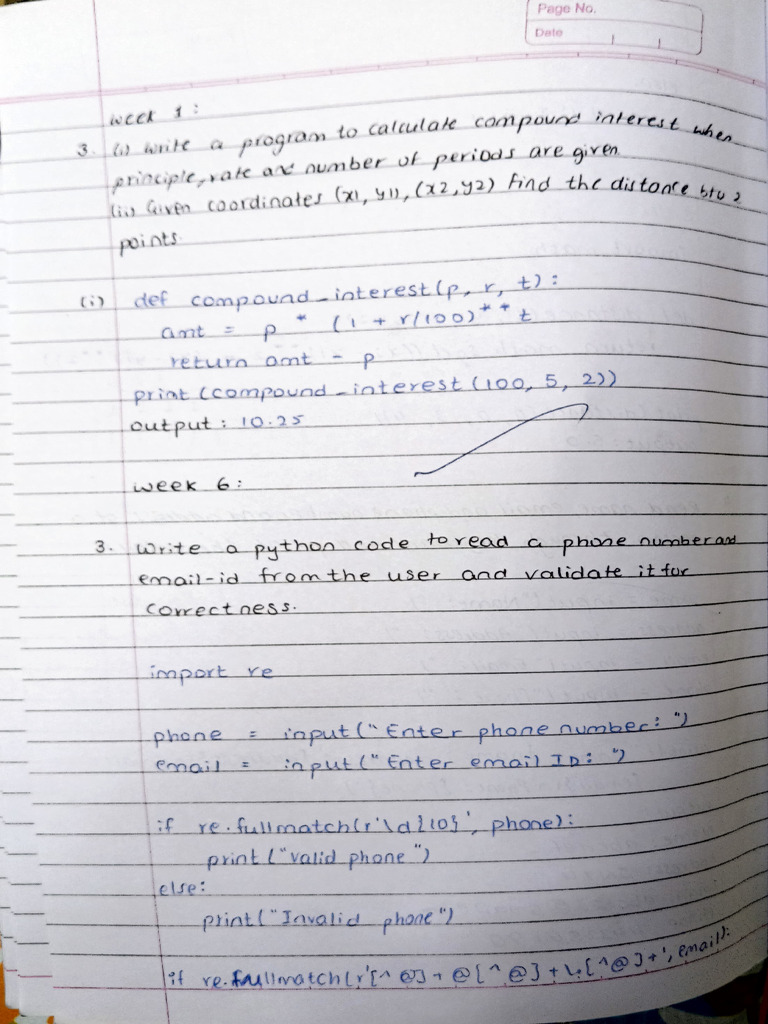 Page No.
Date
week 1:
3. (i) write a program to calculate compound interest when
principle, rate and number of periods are given.
(ii) Given coordinates (x1, y1), (x2, y2) find the distance btw 2
points.
(i) def compound_interest(p, r, t):
amt = p * (1 + r/100)** t
return amt - p
print (compound_interest (100, 5, 2))
output: 10.25
week 6:
3. Write a python code to read a phone number and
email-id from the user and validate it for
correctness.
import re
phone = input("Enter phone number: ")
email = input("Enter email ID: ")
if re.fullmatch(r'\d{10}', phone):
print ("valid phone")
else:
print("Invalid phone")
if re.fullmatch(r'[^@]+@[^@]+\.[^@]+', email):